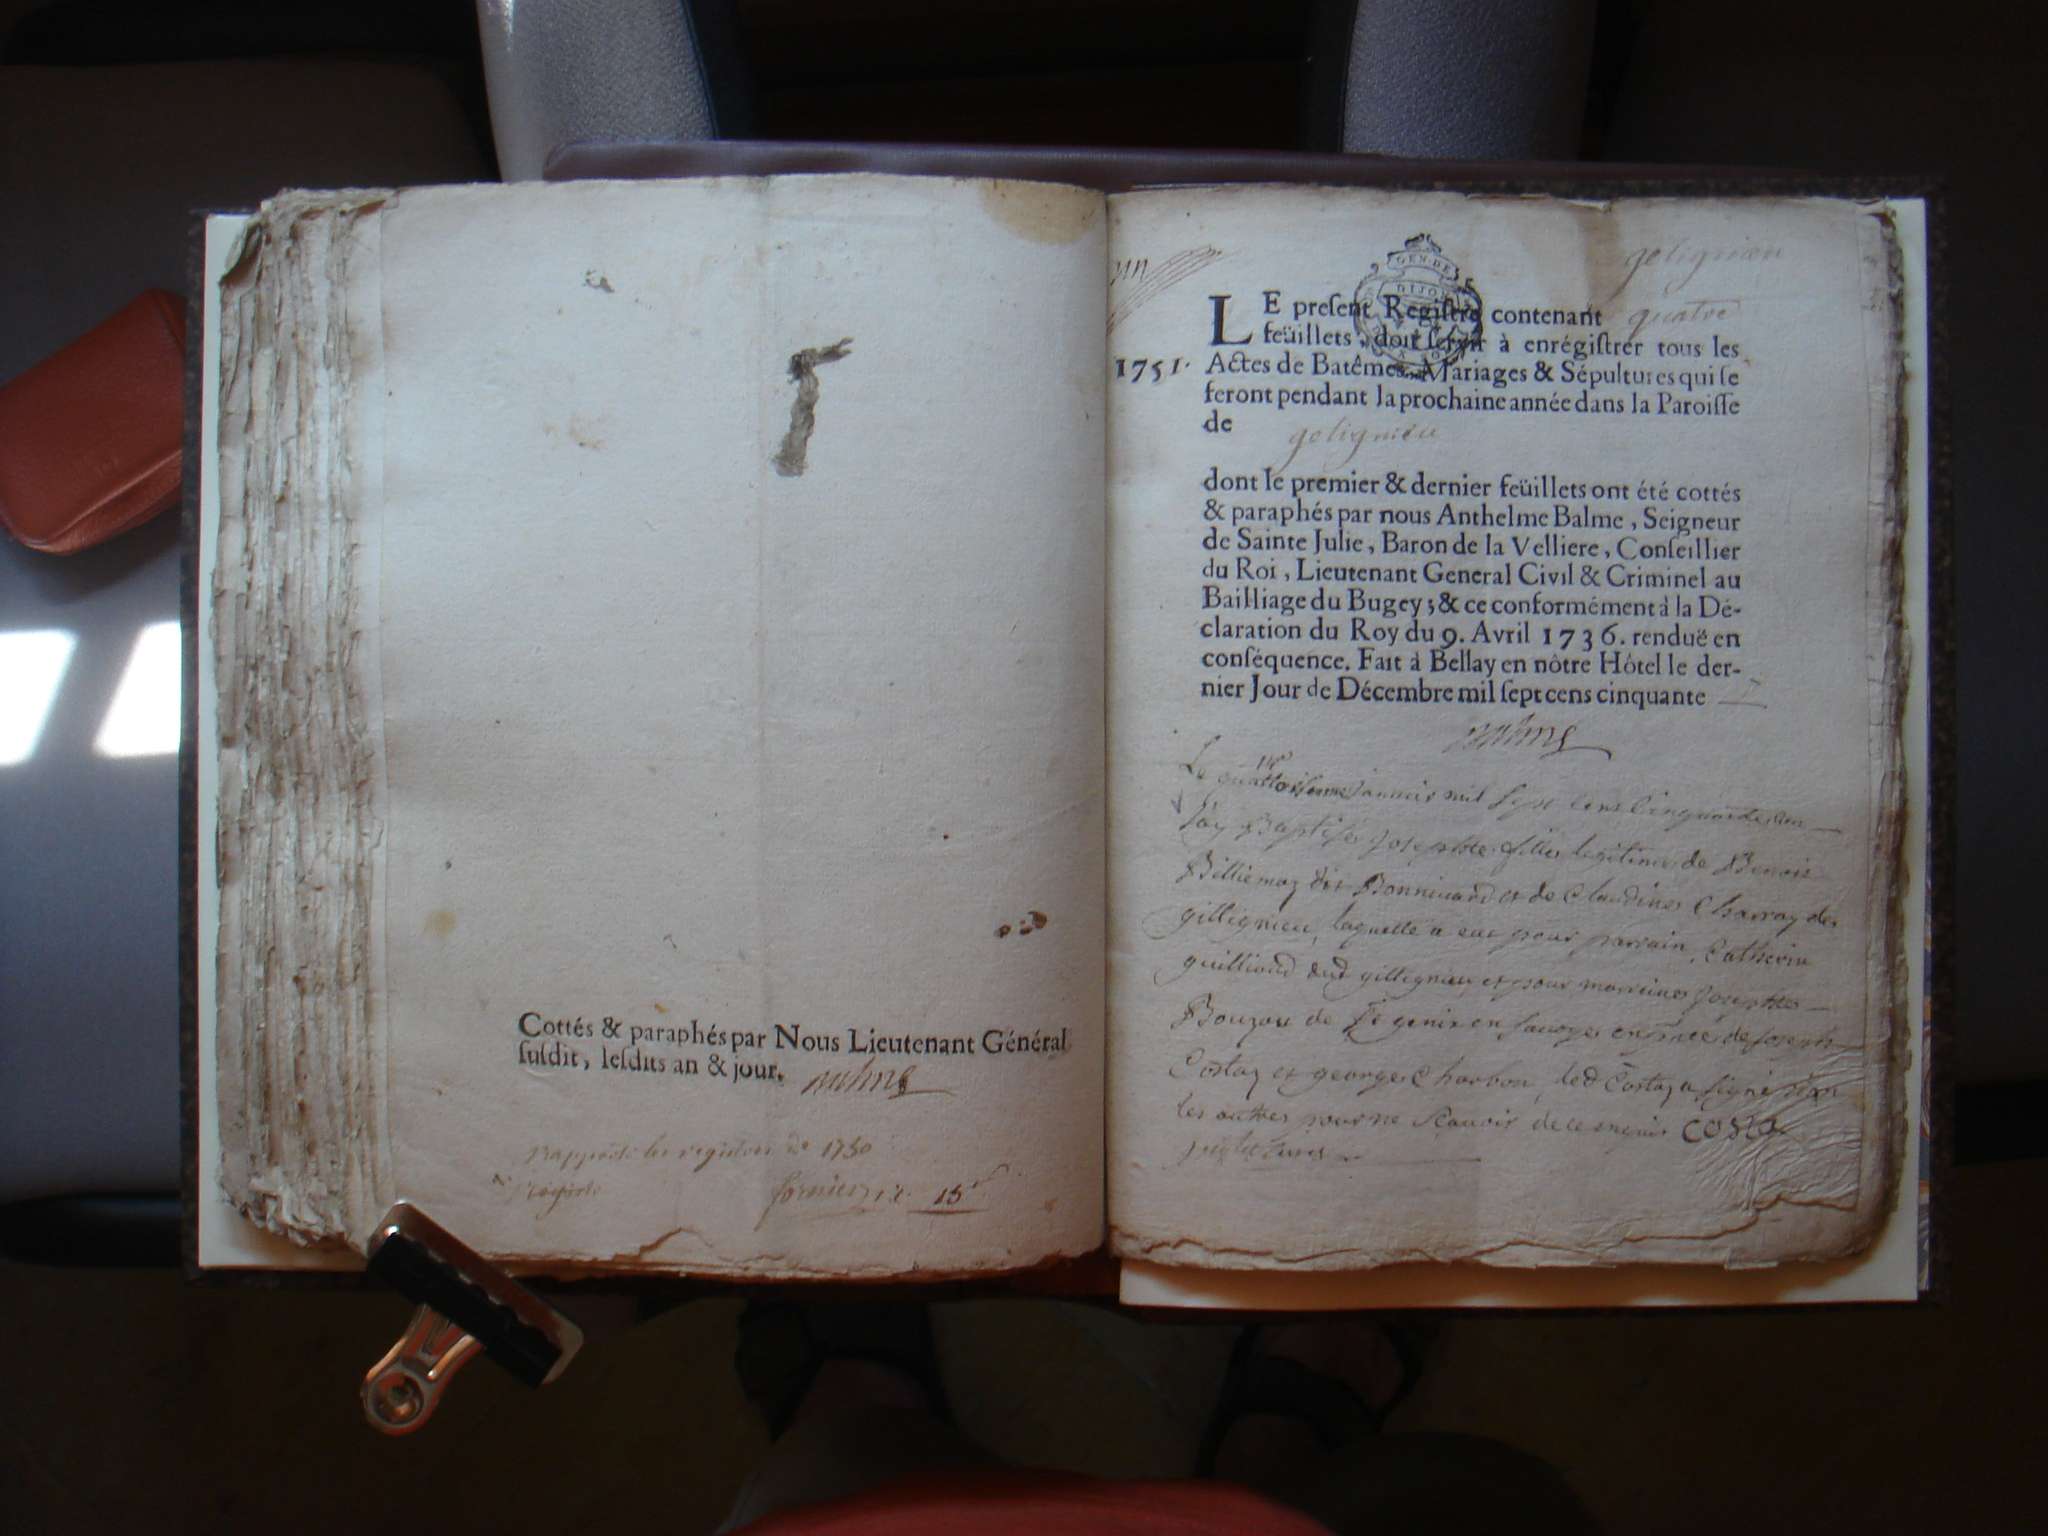 Cottés & paraphés par Nous Lieutenant Général
suſdit, leſdits an & jour.
Balme
Rapporté les registres de 1750
15
un
GEN·DE
DIJON
gelignieu
LE preſent Regiſtre contenant quatre
feüillets, doit ſervir à enrégiſtrer tous les
1751. Actes de Batêmes, Mariages & Sépultures qui ſe
feront pendant la prochaine année dans la Paroiſſe
de gelignieu
dont le premier & dernier feüillets ont été cottés
& paraphés par nous Anthelme Balme, Seigneur
de Sainte Julie, Baron de la Velliere, Conſeillier
du Roi, Lieutenant General Civil & Criminel au
Bailliage du Bugey; & ce conformément à la Dé-
claration du Roy du 9. Avril 1736. renduë en
conſéquence. Fait à Bellay en nôtre Hôtel le der-
nier Jour de Décembre mil ſept cens cinquante
Balme
Le quattorsieme janvier mil sept cens cinquante un
j'ay Baptisé Josephte fille legitime de Benoit
Billiemaz dit Bonnivard et de Claudine Charray de
gillignieu, laquelle a eue pour parrain Catherin
guilliand dud gillignieu et pour marraine Josephte
Bouzon de en savoye en pnce de joseph
Costaz et george Charbon, led Costaz a signé non
les autres pour ne scavoir de ce enquis COSTA